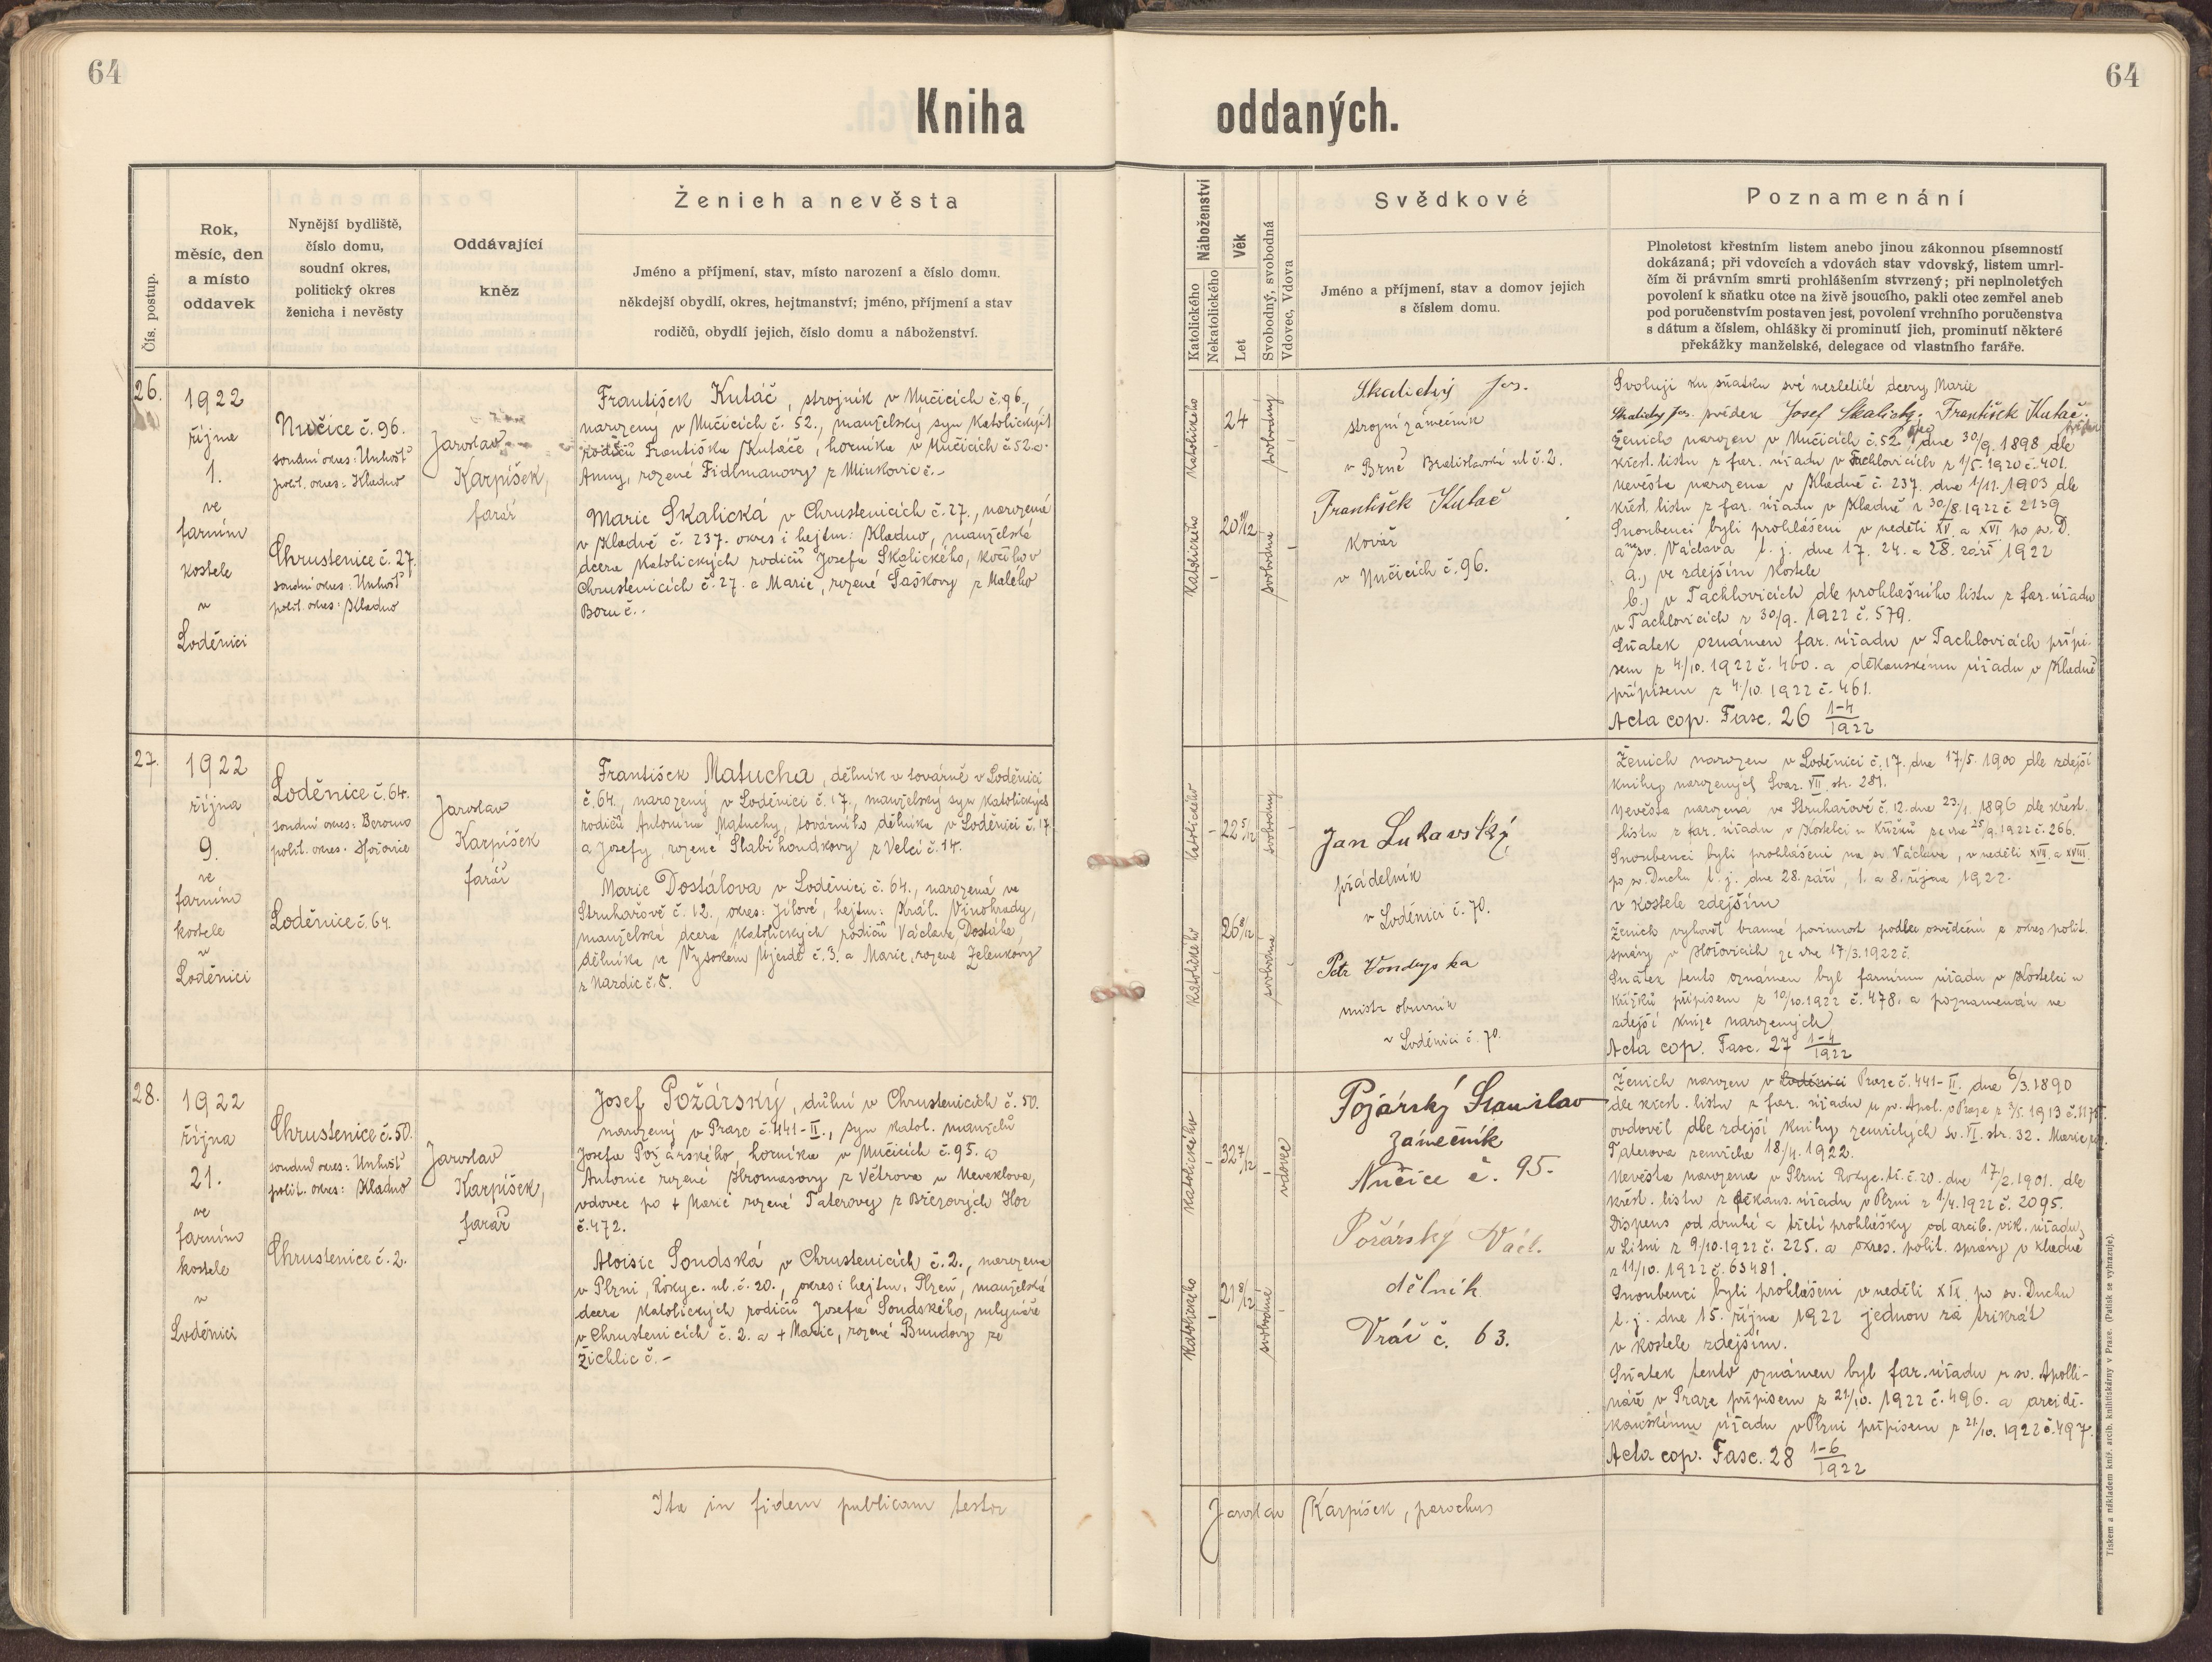 64
64
Kniha oddaných.
Čís. postup.
Rok,
měsíc, den
a místo
oddavek
Nynější bydliště,
číslo domu,
soudní okres,
politický okres
ženicha i nevěsty
Oddávající
kněz
Ženich a nevěsta
Jméno a příjmení, stav, místo narození a číslo domu.
někdejší obydlí, okres, hejtmanství; jméno, příjmení a stav
rodičů, obydlí jejich, číslo domu a náboženství.
Náboženství
Katolického
Nekatolického
Věk
Let
Svobodný, svobodná
Vdovec, Vdova
Svědkové
Jméno a příjmení, stav a domov jejich
s číslem domu.
Poznamenání
Plnoletost křestním listem anebo jinou zákonnou písemností
dokázaná; při vdovcích a vdovách stav vdovský, listem umrl-
čím či právním smrti prohlášením stvrzený; při neplnoletých
povolení k sňatku otce na živě jsoucího, pakli otec zemřel aneb
pod poručenstvím postaven jest, povolení vrchního poručenstva
s dátum a číslem, ohlášky či prominutí jich, prominutí některé
překážky manželské, delegace od vlastního faráře.
26.
1922
října
1.
ve
farním
kostele
v
Loděnici
Nučice č. 96.
soudní okres: Unhošť
polit. okres: Kladno
Chrustenice č. 27.
soudní okres: Unhošť
polit. okres: Kladno
Jaroslav
Karpíšek,
farář
František Kutáč, strojník v Nučicích č. 96.,
narozený v Nučicích č. 52., manželský syn katolických
rodičů Františka Kutáče, horníka v Nučicích č. 52 a
Anny, rozené Fidlmanovy z Minkovic č. -
Marie Skalická v Chrustenicích č. 27., narozená
v Kladně č. 237. okres i hejtm: Kladno, manželská
dcera katolických rodičů Josefa Skalického, kočího v
Chrustenicích č. 27. a Marie, rozené Šaškovy z Malého
Boru č. -
katolického
24
svobodný
katolického
20 11/12
svobodná
Skalický Jos.
strojní zámečník
v Brně Bratislavská ul č. 2.
František Kutač
kovář
v Nučicích č. 96.
Svoluji ku sňatku své nezletilé dcery Marie
Skalický Jos. svědek Josef Skalický, otec František Kutač, svědek
Ženich narozen v Nučicích č. 52 dne 30/9. 1898 dle
křest. listu z far. úřadu v Tachlovicích z 1/5. 1920 č. 401.
Nevěsta narozena v Kladně č. 237. dne 1/11. 1903 dle
křest. listu z far. úřadu v Kladně z 30/8. 1922 č 2139
Snoubenci byli prohlášeni v neděli XV. a XVI po sv. D.
a na sv. Václava t. j. dne 17. 24. a 28. září 1922
a., ve zdejším kostele
b., v Tachlovicích dle prohlašního listu z far. úřadu
v Tachlovicích z 30/9. 1922 č. 579.
Sňatek oznámen far. úřadu v Tachlovicích přípi-
sem z 4/10. 1922 č. 460. a děkanskému úřadu v Kladně
přípisem z 4/10. 1922 č. 461.
Acta cop. Fasc. 26 1-4/1922
27.
1922
října
9.
ve
farním
kostele
v
Loděnici
Loděnice č. 64.
soudní okres: Beroun
polit. okres: Hořovice
Loděnice č. 64.
Jaroslav
Karpíšek
farář
František Matucha, dělník v továrně v Loděnici
č. 64., narozený v Loděnici č. 17., manželský syn katolických
rodičů Antonína Matuchy, továrního dělníka v Loděnici č. 17
a Josefy, rozené Slabihoudkovy z Velci č. 14.
Marie Dostálova v Loděnici č. 64., narozená ve
Struhařově č. 12., okres: Jílové, hejtm: Král. Vinohrady,
manželská dcera katolických rodičů Václava Dostála,
dělníka ve Vysokém Újezdě č. 3. a Marie, rozené Zelenkovy
z Nazdic č. 5.
katolického
22 5/12
svobodný
katolického
26 8/12
svobodná
Jan Lukavský,
přádelník
v Loděnici č. 70.
Petr Vondryska
mistr obuvník
v Loděnici č. 70.
Ženich narozen v Loděnici č. 17. dne 17/5. 1900 dle zdejší
knihy narozených Svaz. VII. str. 281.
Nevěsta narozena ve Struhařově č. 12. dne 23/1. 1896 dle křest.
listu z far. úřadu v Kostelci u Křížků ze dne 25/9. 1922 č. 266.
Snoubenci byli prohlášeni na sv. Václava, v neděli XVII. a XVIII.
po sv. Duchu t. j. dne 28. září, 1. a 8. října 1922.
v kostele zdejším
Ženich vyhověl branné povinnost podle osvědčení z okres. polit.
správy v Hořovicích ze dne 17/3. 1922 č.
Sňatek tento oznámen byl farnímu úřadu v Kostelci u
Křížků přípisem z 10/10. 1922 č. 478. a poznamenán ve
zdejší knize narozených
Acta cop. Fasc. 27 1-4/1922
28.
1922
října
21.
ve
farním
kostele
v
Loděnici
Chrustenice č. 50.
soudní okres: Unhošť
polit. okres: Kladno
Chrustenice č. 2.
Jaroslav
Karpíšek,
farář
Josef Požárský, důlní v Chrustenicích č. 50.
narozený v Praze č. 441-II., syn katol. manželů
Josefa Požárského, horníka v Nučicích č. 95. a
Antonie rozené Hromasovy z Větrova u Neveklova,
vdovec po + Marii rozené Taterovy z Březových Hor
č. 472.
Aloisie Soudská v Chrustenicích č. 2., narozena
v Plzni, Rokyc. ul. č. 20., okres i hejtm. Plzeň, manželská
dcera katolických rodičů Josefa Soudského, mlynáře
v Chrustenicích č. 2. a + Marie, rozené Bundovy ze
Žichlic č. -
katolického
32 7/12
vdovec
katolického
21 8/12
svobodná
Pojárský Stanislav
zámečník
Nučice č. 95.
Požárský Václ.
dělník
Vráž č. 63.
Ženich narozen v Loděnici Praze č. 441-II. dne 6/3. 1890
dle křest. listu z far. úřadu u sv. Apol. v Praze z 3/5. 1913 č. 1175.
ovdověl dle zdejší knihy zemřelých sv. VI. str. 32. Marie roz.
Taterova zemřela 18/4. 1922.
Nevěsta narozena v Plzni Rokyc. tř. č. 20. dne 17/2. 1901. dle
křest. listu z děkans. úřadu v Plzni z 1/4. 1922 č. 2095.
Dispens od druhé a třetí prohlášky od arcib. vik. úřadu
v Litni z 9/10. 1922 č. 225. a okres. polit. správy v Kladně
z 11/10. 1922 č. 63481.
Snoubenci byli prohlášeni v neděli XIX. po sv. Duchu
t. j. dne 15. října 1922 jednou za třikrát
v kostele zdejším.
Sňatek tento oznámen byl far. úřadu u sv. Apolli-
náře v Praze přípisem z 21/10. 1922 č. 496. a arcidě-
kanskému úřadu v Plzni přípisem z 21/10. 1922 č. 497.
Acta cop. Fasc. 28 1-6/1922
Ita in fidem publicam testor Jaroslav Karpíšek, parochus
Tiskem a nákladem kníž. arcib. knihtiskárny v Praze. (Patisk se vyhrazuje).